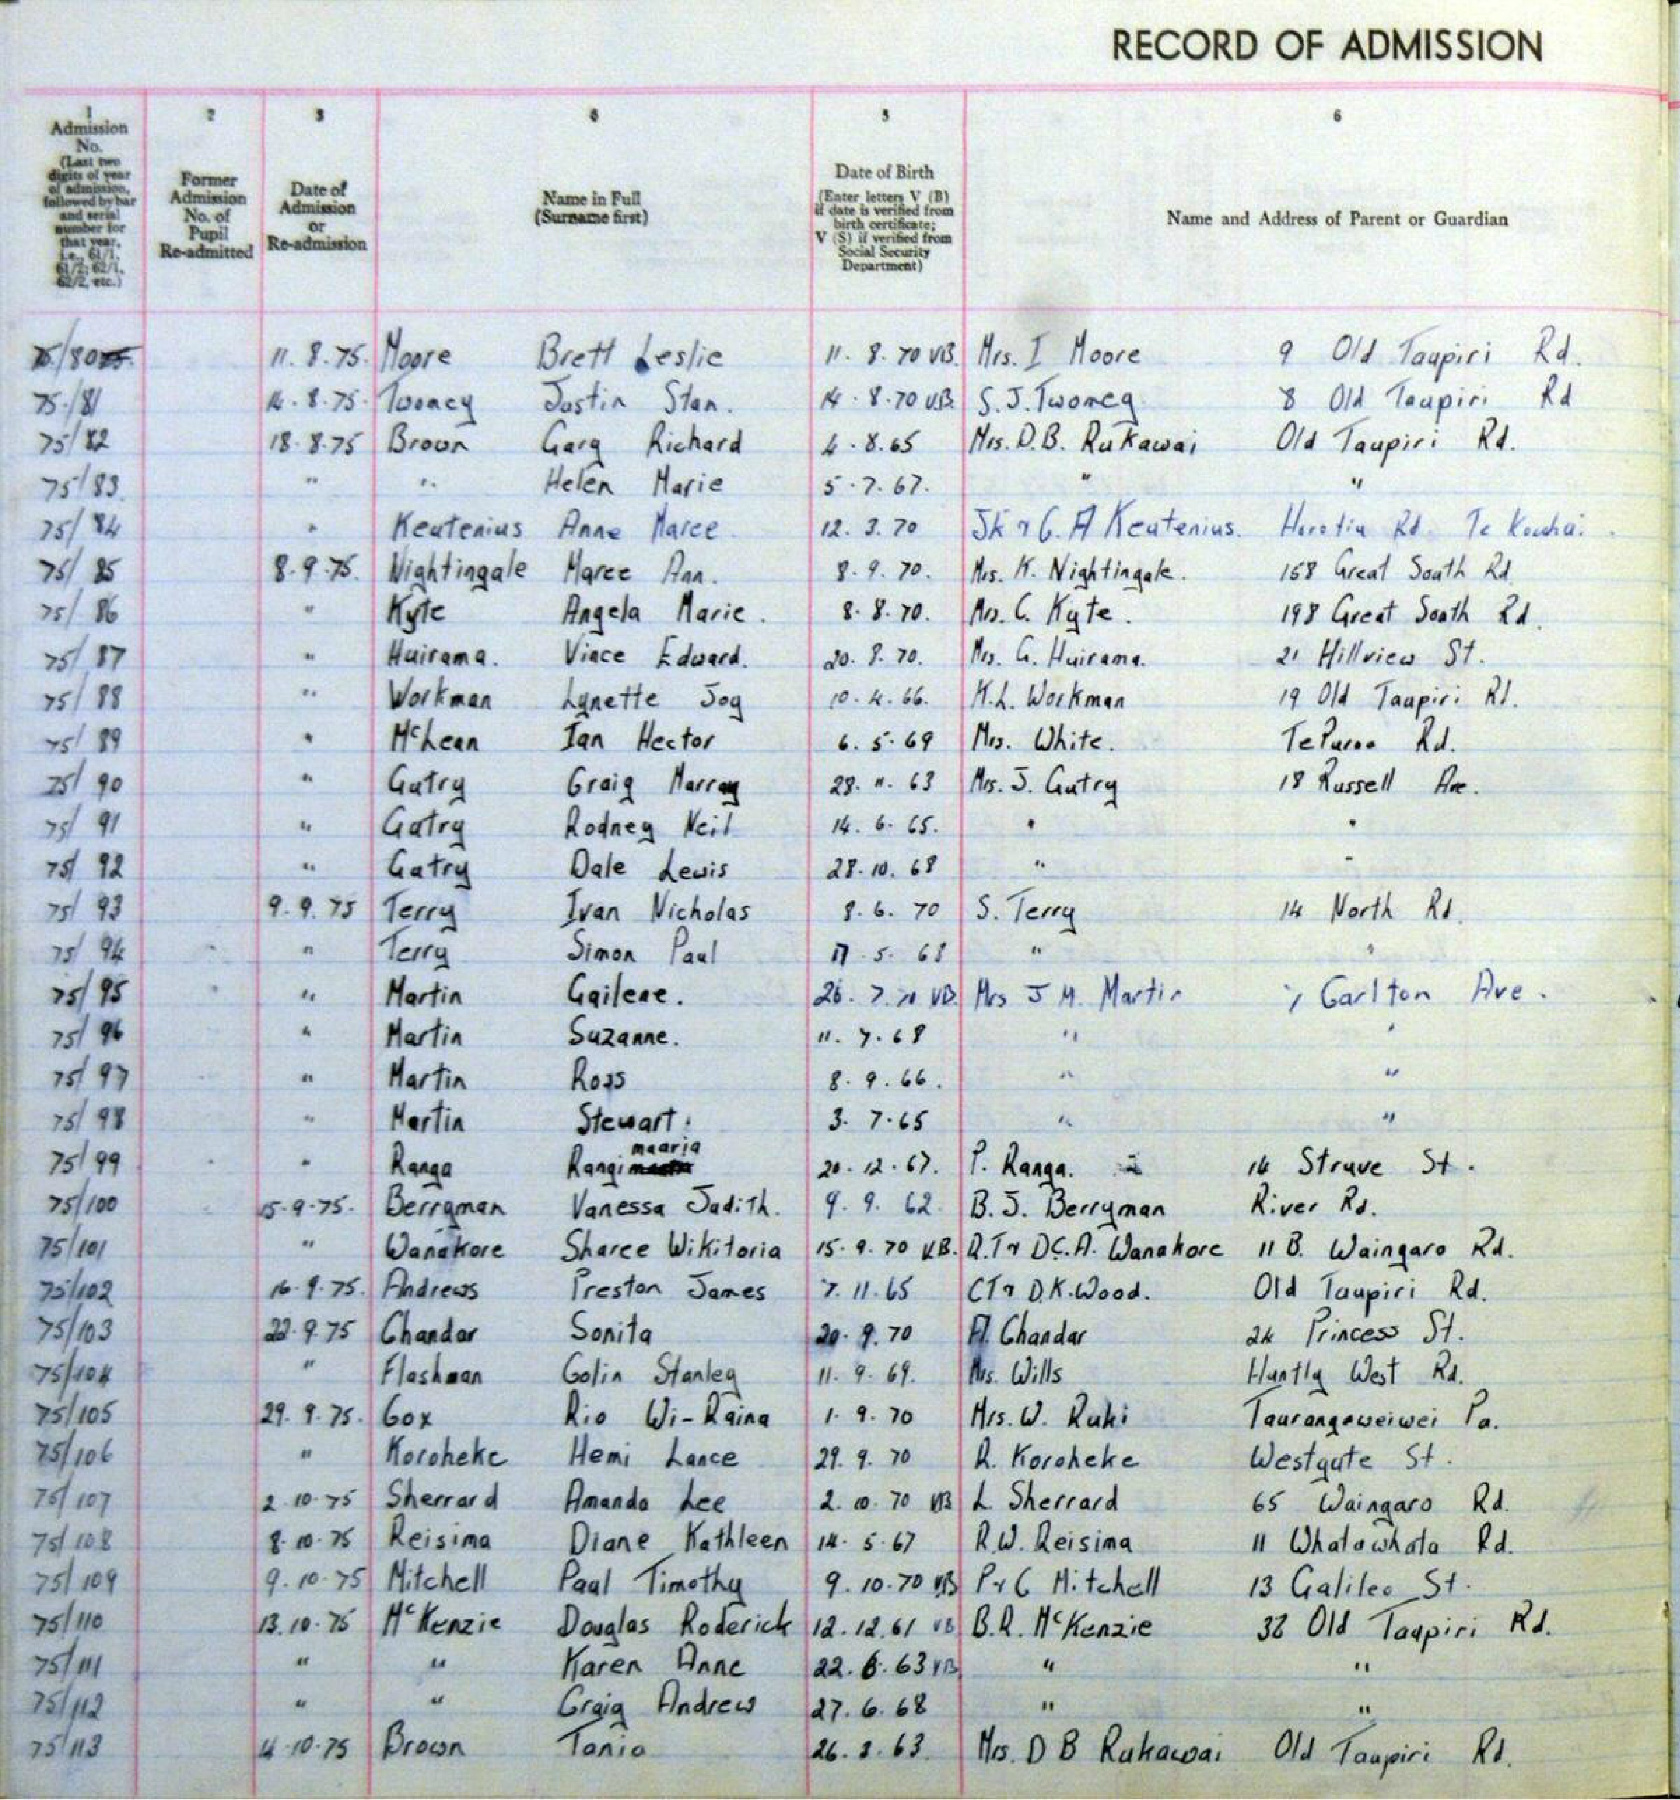 RECORD OF ADMISSION
1 2 3 4 5 6
Admission No. (Last two digits of year of admission, followed by bar and serial number for that year, i.e., 61/1, 61/2; 62/1, 62/2, etc.)
Former Admission No. of Pupil Re-admitted
Date of Admission or Re-admission
Name in Full (Surname first)
Date of Birth (Enter letters V (B) if date is verified from birth certificate; V (S) if verified from Social Security Department)
Name and Address of Parent or Guardian
75/80 11.8.75. Moore Brett Leslie 11.8.70 VB. Mrs. I Moore 9 Old Taupiri Rd.
75/81 14.8.75. Twomey Justin Stan. 14.8.70 V.B. S.J. Twomey 8 Old Taupiri Rd
75/82 18.8.75 Brown Gary Richard 4.8.65 Mrs. D.B. Rukawai Old Taupiri Rd.
75/83 " " Helen Marie 5.7.67. " "
75/84 " Keutenius Anne Maree 12.3.70 JK & C.A Keutenius. Horotiu Rd Te Kowhai.
75/85 8.9.75. Nightingale Maree Ann. 8.9.70. Mrs. K. Nightingale. 158 Great South Rd
75/86 " Kyte Angela Marie. 8.8.70. Mrs. C. Kyte. 198 Great South Rd.
75/87 " Huirama. Vince Edward. 20.8.70. Mrs. G. Huirama. 21 Hillview St.
75/88 " Workman Lynette Joy 10.4.66. K.L. Workman 19 Old Taupiri Rd.
75/89 " McLean Ian Hector 6.5.69 Mrs. White. Te Puroa Rd.
75/90 " Gutry Craig Murray 28.11.63 Mrs. J. Gutry 18 Russell Ave.
75/91 " Gutry Rodney Neil 14.6.65. " "
75/92 " Gutry Dale Lewis 28.10.68 " "
75/93 9.9.75 Terry Ivan Nicholas 8.6.70 S. Terry 14 North Rd.
75/94 " Terry Simon Paul 17.5.68 " "
75/95 " Martin Gailene. 26.7.70 VB. Mrs J M. Martin Carlton Ave.
75/96 " Martin Suzanne. 11.7.68 " "
75/97 " Martin Ross 8.9.66. " "
75/98 " Martin Stewart. 3.7.65 " "
75/99 " Ranga Rangimaaria 20.12.67. P. Ranga. 14 Struve St.
75/100 15.9.75. Berryman Vanessa Judith. 9.9.62. B.J. Berryman River Rd.
75/101 " Wanakore Sharee Wikitoria 15.9.70 V.B. R.T & D.C.A. Wanakore 11 B. Waingaro Rd.
75/102 16.9.75. Andrews Preston James 7.11.65 CT & D.K. Wood. Old Taupiri Rd.
75/103 22.9.75 Chandar Sonita 20.9.70 A. Chandar 24 Princess St.
75/104 " Flashman Colin Stanley 11.9.69. Mrs. Wills Huntly West Rd.
75/105 29.9.75. Cox Rio Wi-Raina 1.9.70 Mrs. W. Ruki Taurangaweiwei Pa.
75/106 " Koroheke Hemi Lance 29.9.70 R. Koroheke Westgate St.
75/107 2.10.75 Sherrard Amanda Lee 2.10.70 VB L Sherrard 65 Waingaro Rd.
75/108 8.10.75 Reisima Diane Kathleen 14.5.67 R.W. Reisima 11 Whatawhata Rd.
75/109 9.10.75 Mitchell Paul Timothy 9.10.70 VB P & C Mitchell 13 Galileo St.
75/110 13.10.75 McKenzie Douglas Roderick 12.12.61 VB B.R. McKenzie 32 Old Taupiri Rd.
75/111 " " Karen Anne 22.6.63 VB " "
75/112 " " Craig Andrew 27.6.68 " "
75/113 14.10.75 Brown Tania 26.3.63. Mrs. D B Rukawai Old Taupiri Rd.